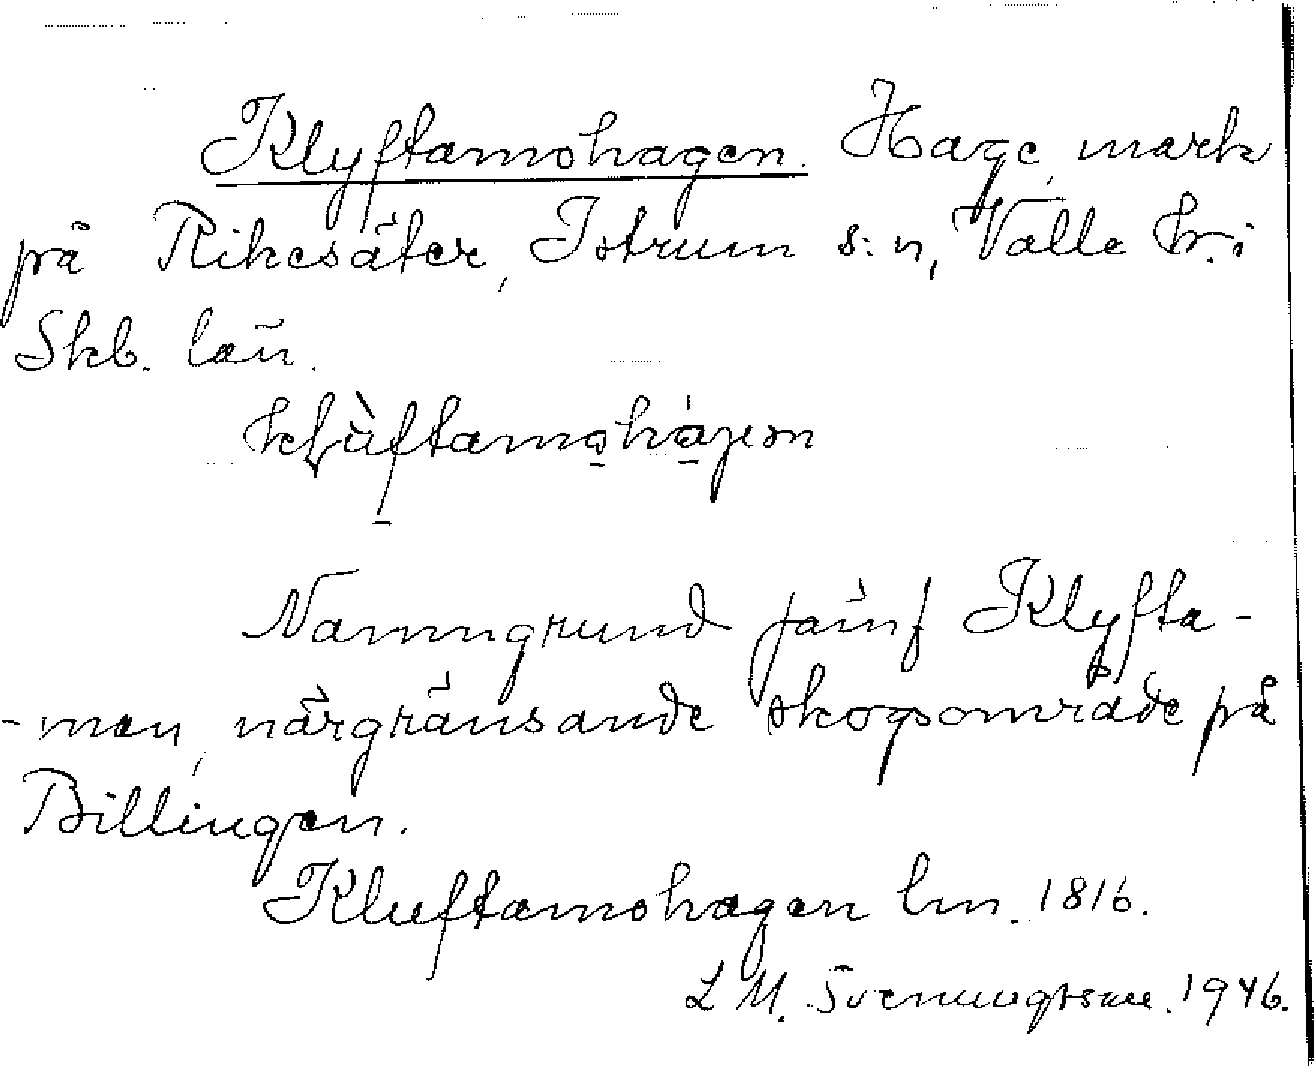 Klyftamohagen. Hage, mark
på Rikesäter, Istrum s:n, Valle hr. i
Skb. län.
Namngrund jämf Klyfta-
-mon, närgränsande skogsområde på
Billingen.
Kluftamohagen lm. 1816.
L M. Svenungsson. 1946.